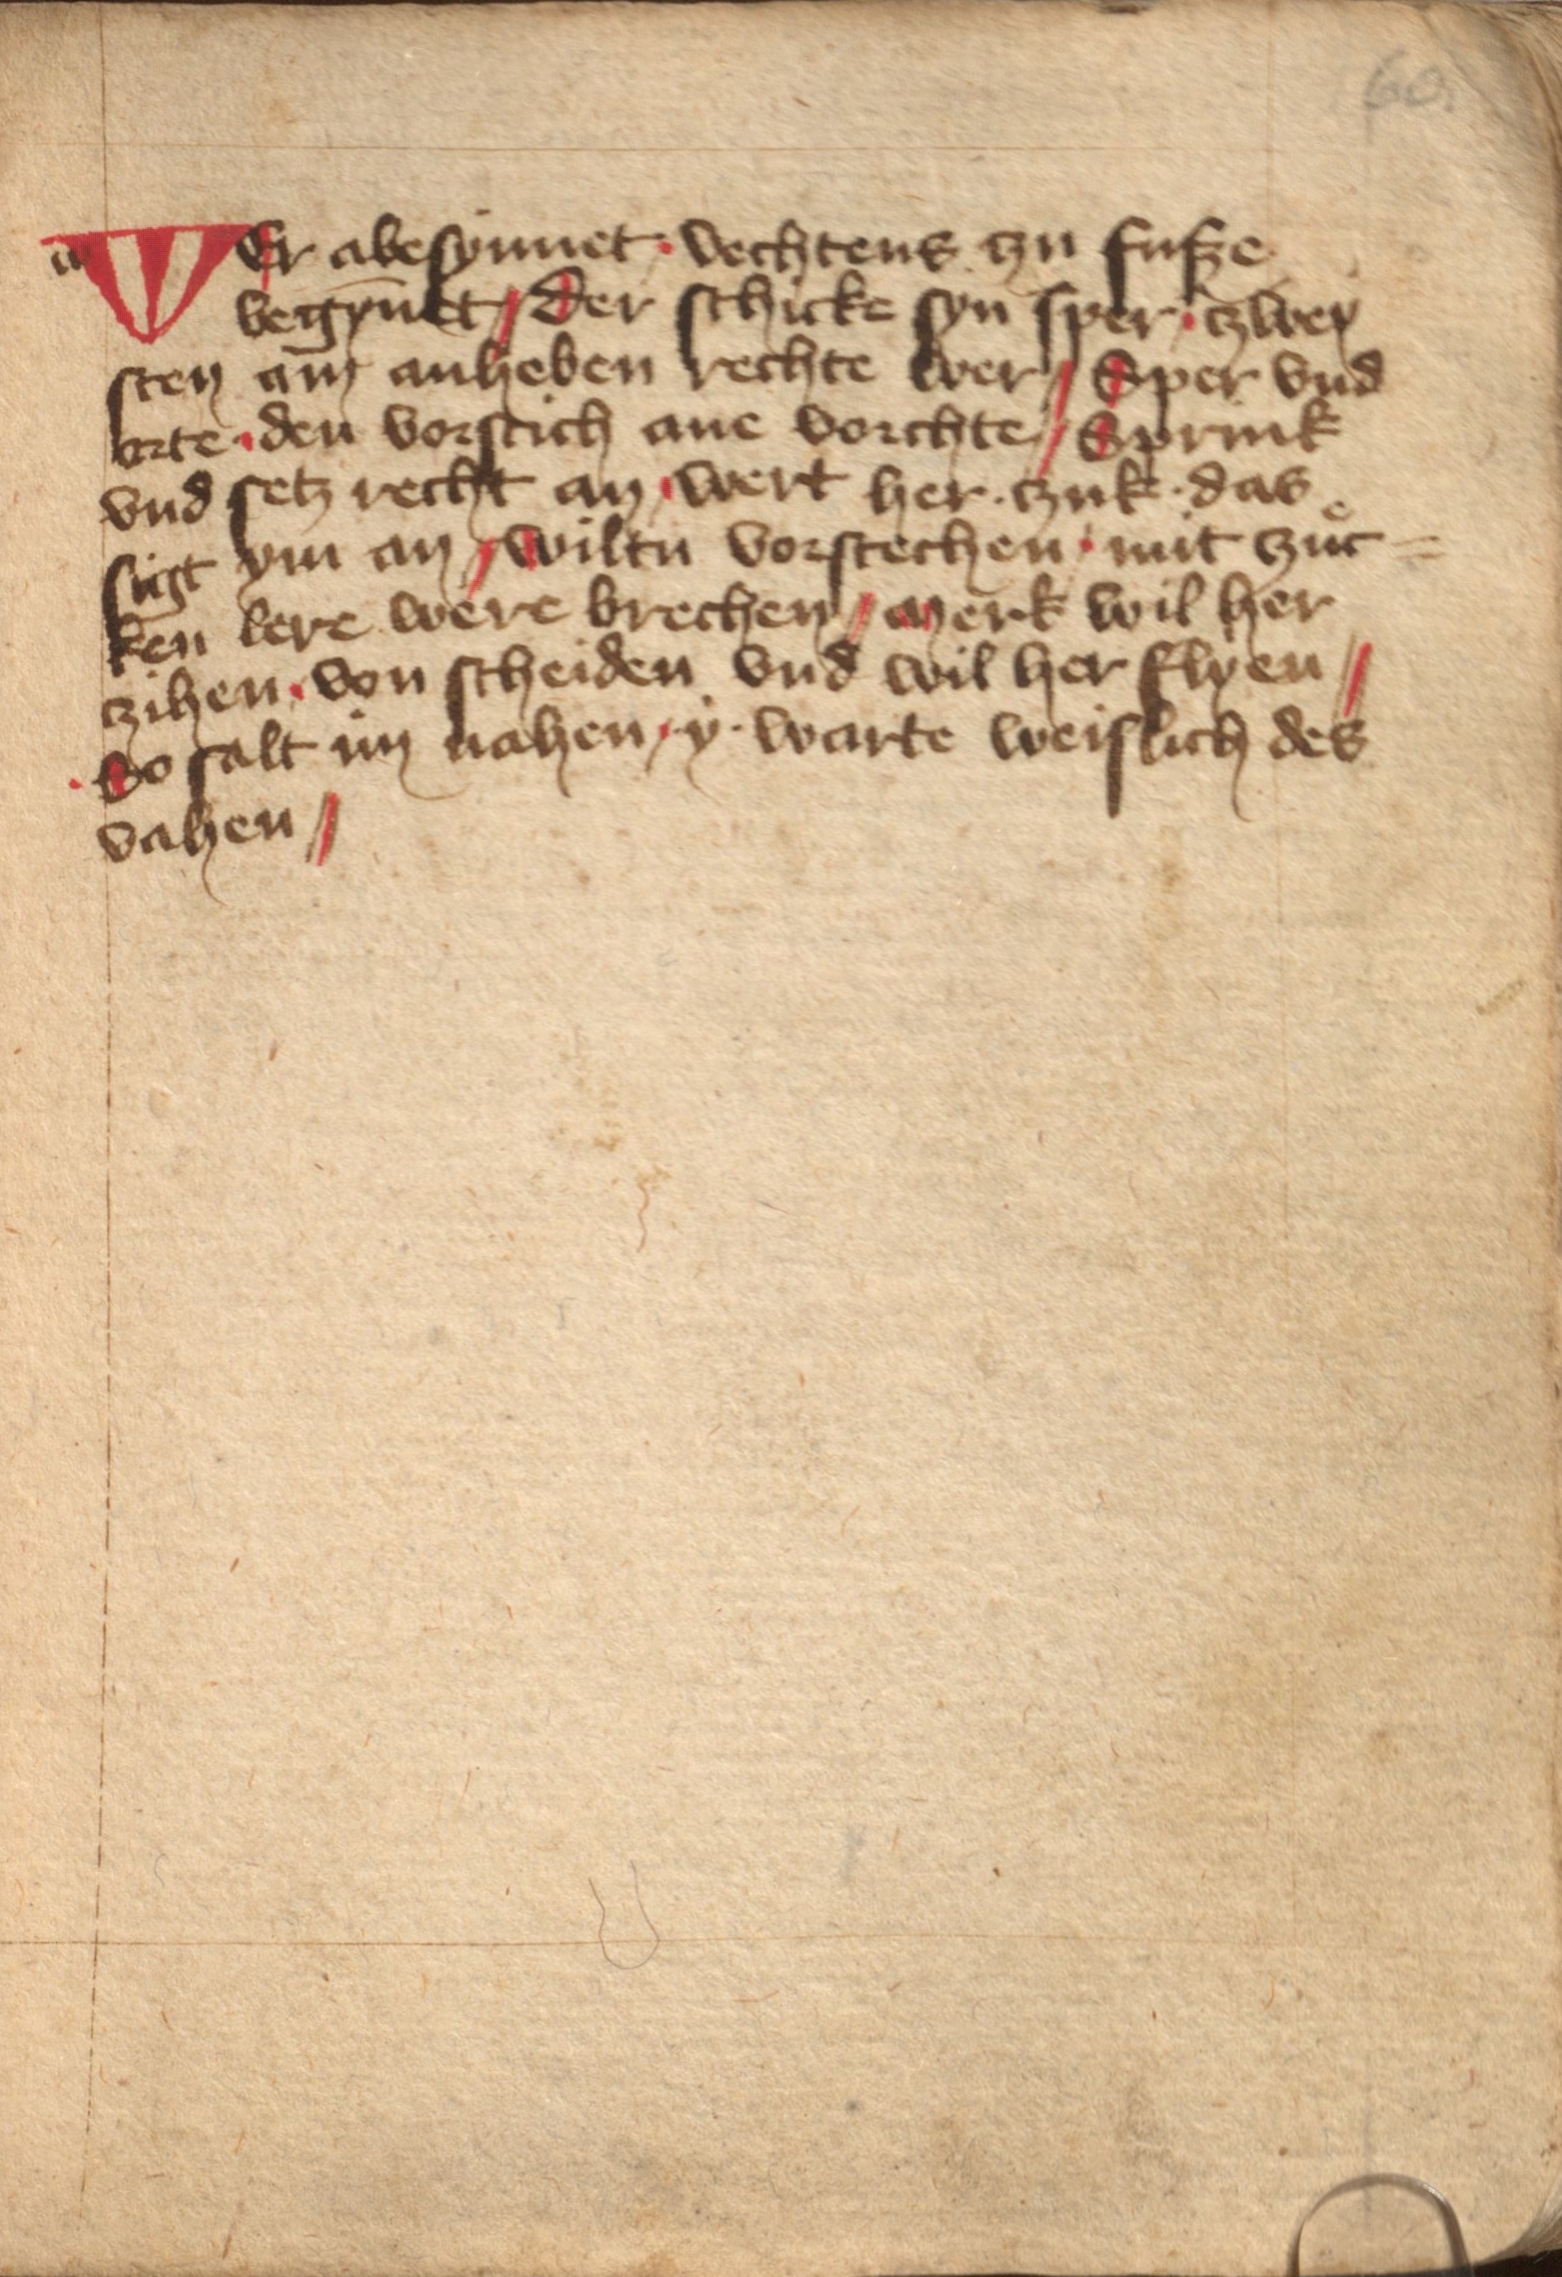 60.
WEr abesynnet · vechtens tzu fusze
begynēt // Der schicke syn sper · tzwey
sten am anheben rechte wer // Sper vnd
orte · den vorstich ane vorchte // Sprink
vnd setz recht an · wert her · tzuk · das
sigt ym an // wiltu vorstechen · mit tzuͦc =
ken lere were brechen // Merk wil her
tzihen · von scheiden vnd wil her flyen //
· So salt im nahen · y · warte weislich des
vahen //